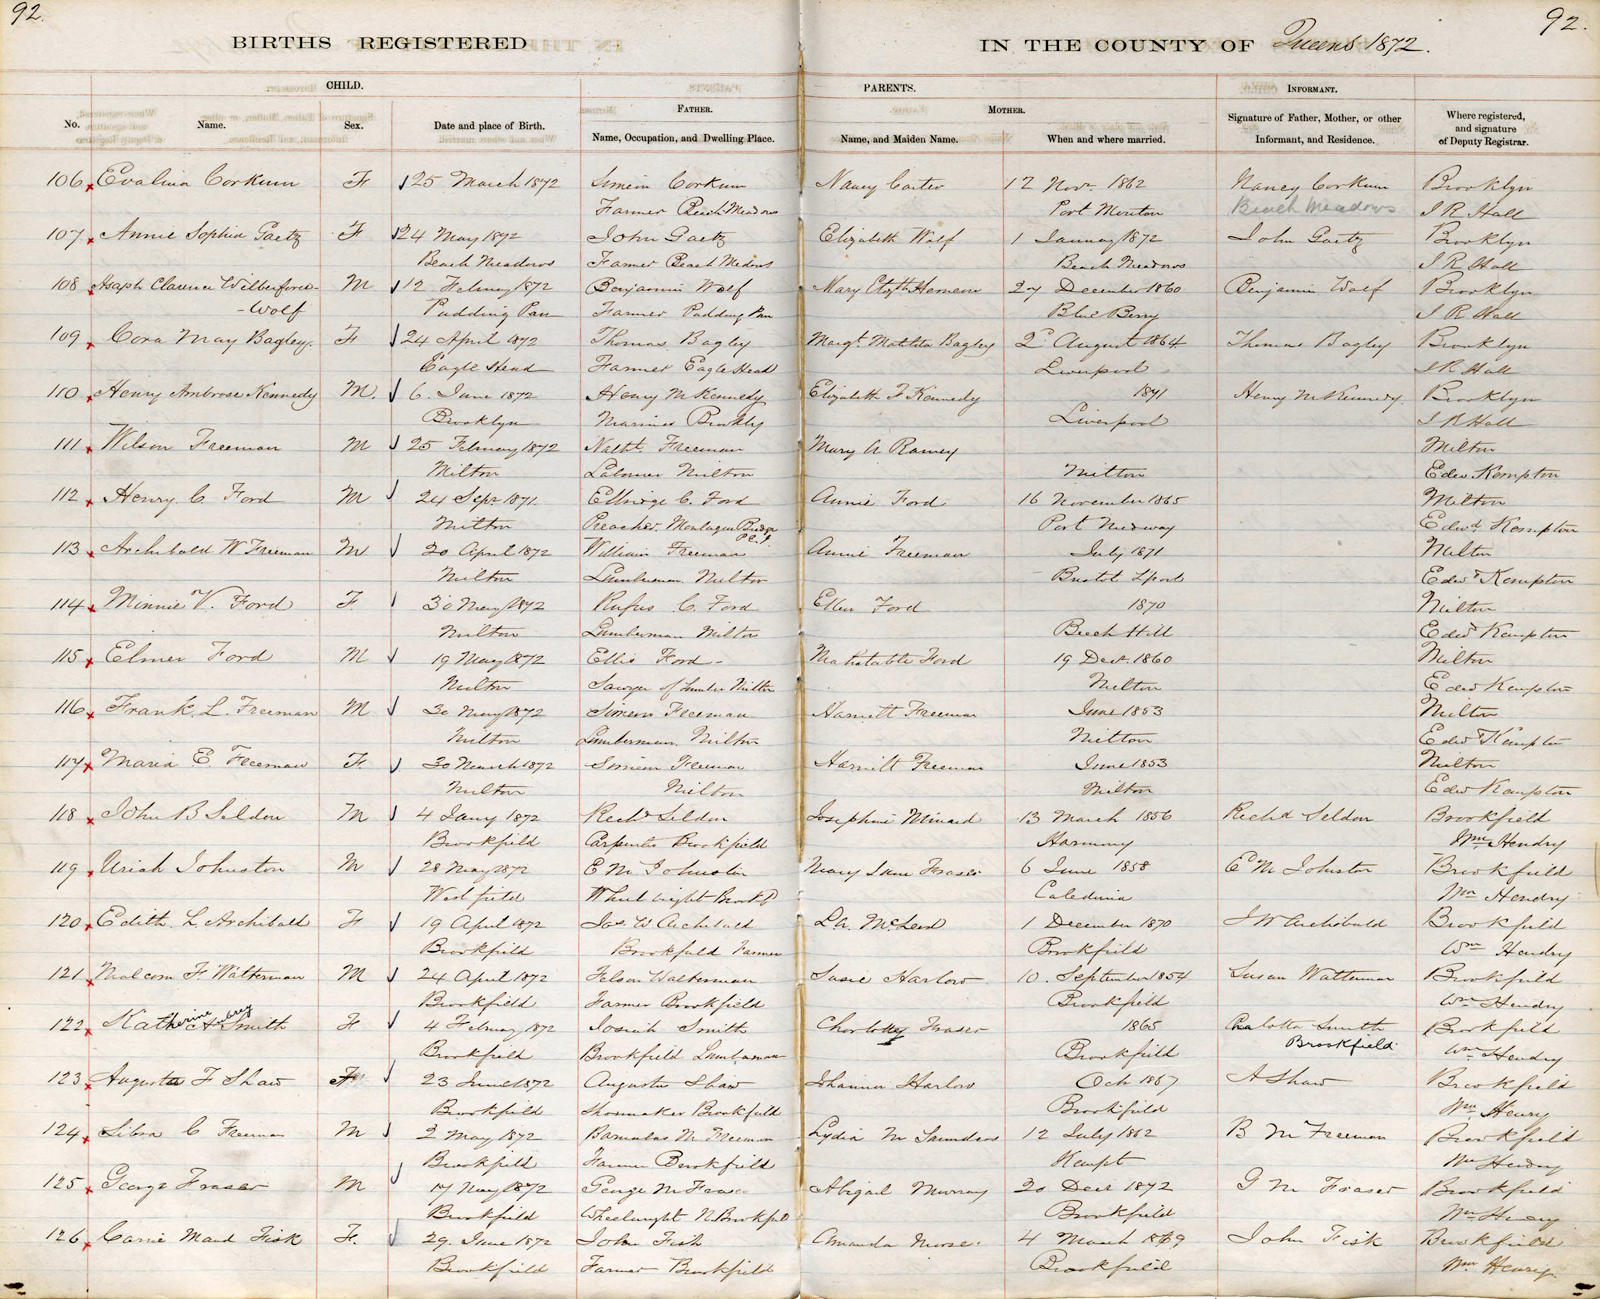 92.
92.
BIRTHS REGISTERED
IN THE COUNTY OF Queens 1872.
CHILD.
PARENTS.
INFORMANT.
No.
Name.
Sex.
Date and place of Birth.
FATHER.
Name, Occupation, and Dwelling Place.
MOTHER.
Name, and Maiden Name.
When and where married.
Signature of Father, Mother, or other
Informant, and Residence.
Where registered,
and signature
of Deputy Registrar.
106 Evalina Corkum F 25 March 1872 Simein Corkum Nancy Carter 17 Novr 1862 Nancy Corkum Brooklyn
Farmer Beach Meadows Port Mouton Beach Meadows I R Hall
107 Annie Sophia Gaetz F 24 May 1872 John Gaetz Elizabeth Wolf 1 January 1872 John Gaetz Brooklyn
Beach Meadows Farmer Beach Medows Beach Meadows I R Hall
108 Asaph Clarence Wilberforce M 12 Febury 1872 Benjamin Wolf Mary Elizth 27 December 1860 Benjamin Wolf Brooklyn
-Wolf Pudding Pan Farmer Pudding Pan Blue Berry I R Hall
109 Cora May Bagley. F 24 April 1872 Thomas Bagley Margt. Matilda Bagley 2d August 1864 Thomas Bagley Brooklyn
Eagle Head Farmer Eagle Head Liverpool I R Hall
110 Henry Ambrose Kennedy M. 6. June 1872 Henry M Kennedy Elizabeth F Kennedy 1871 Henry M Kennedy. Brooklyn
Brooklyn Mariner Brooklyn Liverpool I R Hall
111 Wilson Freeman M 25 February 1872 Nathl. Freeman Mary A Ramey Milton
Milton Laborer Milton Milton Edwd Kempton
112 Henry C Ford M 24 Sept 1871. Elbridge C. Ford Annie Ford 16 November 1865 Milton
Milton Preacher Montague Bridge P.E.I. Port Medway Edwd Kempton
113 Archibald W Freeman M 20 April 1872 William Freeman Annie Freeman July 1871 Milton
Milton Lumberman Milton Bristol Lpool Edwd Kempton
114 Minnie V. Ford F 30 May 1872 Rufus C. Ford Ellen Ford 1870 Milton
Milton Lumberman Milton Beech Hill Edwd Kempton
115 Elmer Ford M 19 May 1872 Ellis Ford Mahitable Ford 19 Dect. 1860 Milton
Milton Sawyer of Lumber Milton Milton Edwd Kempton
116 Frank. L. Freeman M 30 May 1872 Simeon Freeman Harriett Freeman June 1853 Milton
Milton Lumberman. Milton Milton Edwd Kempton
117 Maria E. Freeman F. 30 March 1872 Simeon Freeman Harriett Freeman June 1853 Milton
Milton Milton Milton Edwd Kempton
118 John B Seldon M 4 Jany 1872 Richd Seldon Josephine Minard 13 March 1856 Richd Seldon Brookfield
Brookfield Carpenter Brookfield Harmony Wm Hendry
119 Uriah Johnston M 28 May 1872 E M Johnston Mary Jane Fraser 6 June 1858 E M Johnston Brookfield
Westfield Wheelwright Brookfd Caledonia Wm Hendry
120 Edith L Archibald F 19 April 1872 Jos W Archibald La. McLeod 1 December 1870 J W Archibald Brookfield
Brookfield Brookfield Farmer Brookfield Wm Hendry
121 Malcom F. Watterman M 24 April 1872 Felson Watterman Susie Harlow 10. September 1854 Susan Watterman Brookfield
Brookfield Farmer Brookfield Brookfield Wm Hendry
122 Katherine Aubrey Smith F 4 Febuary 1872 Josiah Smith Charlotty Fraser 1865 Chalotta Smith Brookfield
Brookfield Brookfield Lumberman Brookfield Brookfield Wm Hendry
123 Augusta F Shaw F 23 June 1872 Augustus Shaw Johanna Harlow Oct 1867 A Shaw Brookfield
Brookfield Shoemaker Brookfield Brookfield Wm Henry
124 Libra C Freeman M 2 May 1872 Barnabas M Freeman Lydia M Saunders 12 July 1862 B M Freeman Brookfield
Brookfield Farmer Brookfield Kempt Wm Hendry
125 George Fraser M 17 May 1872 George M Fraser Abigail Murray 20 Dect 1872 G M Fraser Brookfield
Brookfield Wheelwright N Brookfield Brookfield Wm Hendry
126 Carrie Maud Fisk F. 29. June 1872 John Fisk Amanda Morse 4 March 1869 John Fisk Brookfield
Brookfield Farmer Brookfield Brookfield Wm Henry.